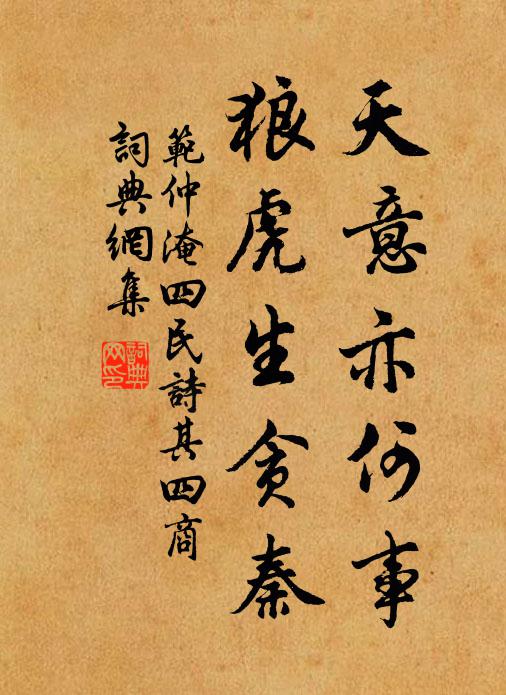 天意亦何事
狼虎生贪秦
範仲淹四民詩其四商
詞典網集
詞典网印